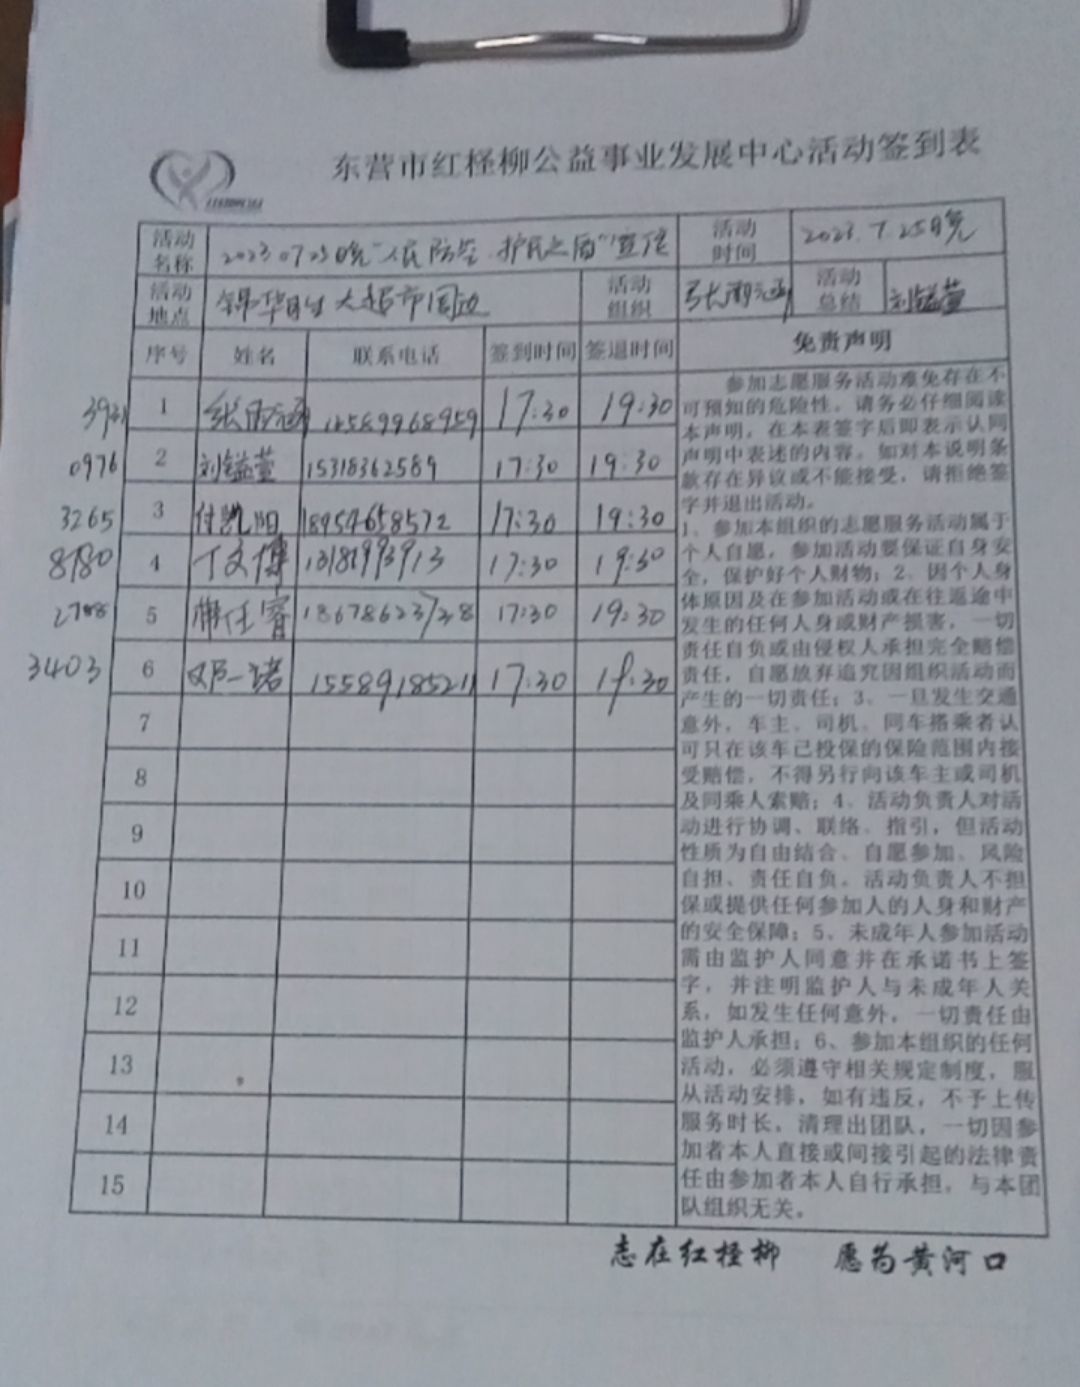 东营市红柽柳公益事业发展中心活动签到表
活动名称 2023.07.25晚"人民防空·护民之盾"宣传 活动时间 2023.7.25日晚
活动地点 锦华 大超市周边 活动组织 张雨涵 活动总结 刘镒萱
序号 姓名 联系电话 签到时间 签退时间 免责声明
1 张雨涵 17:30 19:30
0976 2 刘镒萱 15318362589 17:30 19:30
3265 3 付凯阳 18954658572 17:30 19:30
8180 4 丁文博 17:30 19:30
5 任睿 17:30 19:30
3403 6 邓一诺 15589185211 17:30 19:30
7
8
9
10
11
12
13
14
15
参加志愿服务活动难免存在不
可预知的危险性，请务必仔细阅读
本声明，在本表签字后即表示认同
声明中表述的内容。如对本说明条
款存在异议或不能接受，请拒绝签
字并退出活动。
1、参加本组织的志愿服务活动属于
个人自愿，参加活动要保证自身安
全，保护好个人财物；2、因个人身
体原因及在参加活动或在往返途中
发生的任何人身或财产损害，一切
责任自负或由侵权人承担完全赔偿
责任，自愿放弃追究因组织活动而
产生的一切责任；3、一旦发生交通
意外，车主、司机、同车搭乘者认
可只在该车已投保的保险范围内接
受赔偿，不得另行向该车主或司机
及同乘人索赔；4、活动负责人对活
动进行协调、联络、指引，但活动
性质为自由结合、自愿参加、风险
自担、责任自负。活动负责人不担
保或提供任何参加人的人身和财产
的安全保障；5、未成年人参加活动
需由监护人同意并在承诺书上签
字，并注明监护人与未成年人关
系，如发生任何意外，一切责任由
监护人承担；6、参加本组织的任何
活动，必须遵守相关规定制度，服
从活动安排，如有违反，不予上传
服务时长，清理出团队，一切因参
加者本人直接或间接引起的法律责
任由参加者本人自行承担，与本团
队组织无关。
志在红柽柳 愿为黄河口